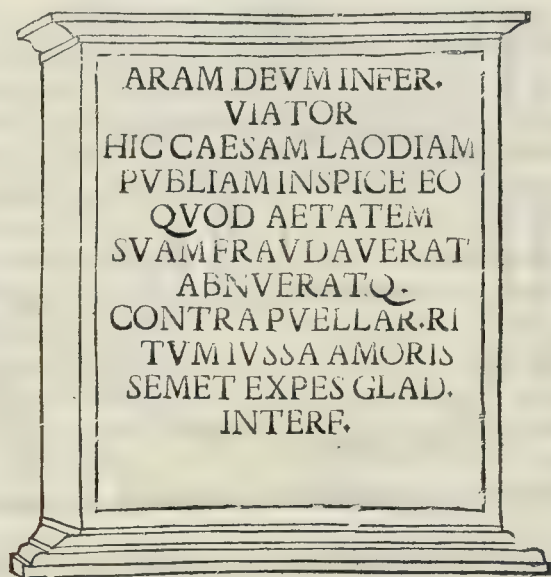 ARAM DEVM INFER.
VIATOR
HIC CAESAM LAODIAM
PVBLIAM INSPICE EO
QVOD AETATEM
SVAM FRAVDAVERAT
ABNVERATQ.
CONTRA PVELLAR. RI
TVM IVSSA AMORIS
SEMET EXPES GLAD.
INTERF.